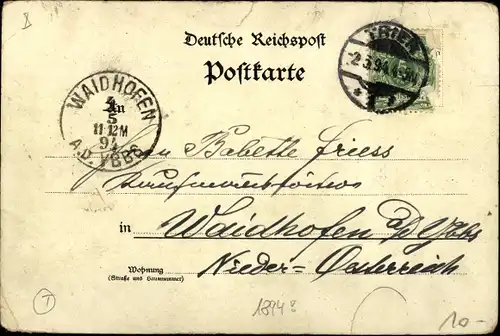 Deutsche Reichspost
Postkarte
TRIER
2.5.94
WAIDHOFEN
4
5
11-12M
94
A.D. YBBS
An
Babette Friess
in Waidhofen a/d Ybbs
Nieder=Österreich
Wohnung
(Straße und Hausnummer)
1894?
10.-